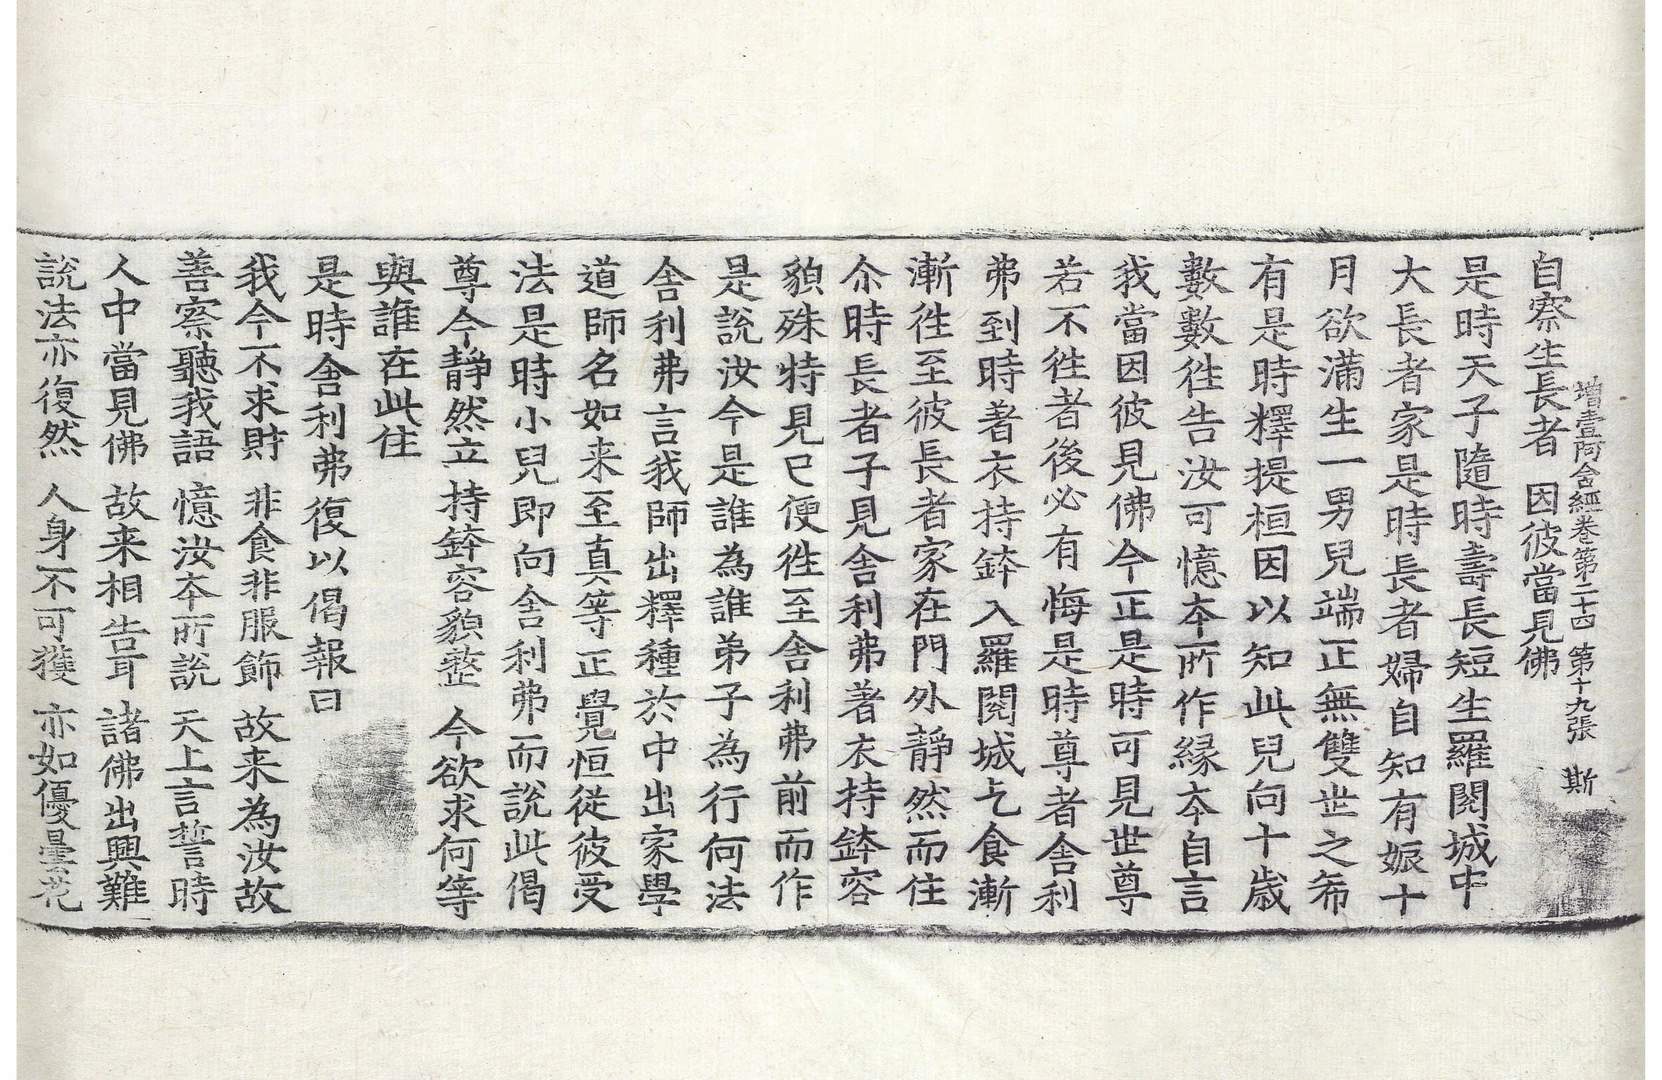 增壹阿含經卷第二十四　第十九張　斯
自察生長者　因彼當見佛
是時天子隨時壽長短生羅閱城中
大長者家是時長者婦自知有娠十
月欲滿生一男兒端正無雙世之希
有是時釋提桓因以知此兒向十歲
數數徃告汝可憶夲所作緣夲自言
我當因彼見佛今正是時可見世尊
若不徃者後必有悔是時尊者舍利
弗到時著衣持鉢入羅閱城乞食漸
漸徃至彼長者家在門外靜然而住
尒時長者子見舍利弗著衣持鉢容
貌殊特見已便徃至舍利弗前而作
是說汝今是誰為誰弟子為行何法
舍利弗言我師出釋種於中出家學
道師名如来至真等正覺恒從彼受
法是時小兒即向舍利弗而說此偈
尊今靜然立　持鉢容貌整　今欲求何等
與誰在此住
是時舍利弗復以偈報曰
我今不求財　非食非服飾　故来為汝故
善察聽我語　憶汝夲所說　天上言誓時
人中當見佛　故来相告耳　諸佛出興難
說法亦復然　人身不可獲　亦如優曇花